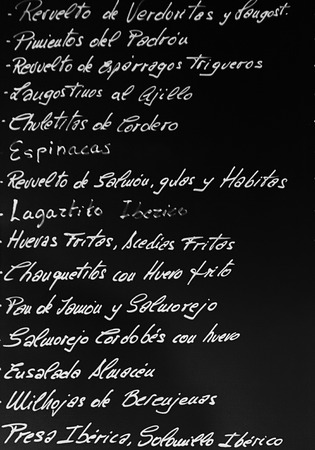 - Revuelto de Verduritas y Langost.
- Pimientos del Padrón
- Revuelto de Espárragos Trigueros
- Langostinos al Ajillo
- Chuletitas de Cordero
Espinacas
- Revuelto de Salmón, gulas y Habitas
- Lagartito Ibérico
- Huevas Fritas, Acedias Fritas
- Chanquetitos con Huevo frito
- Pan de Jamón y Salmorejo
- Salmorejo Cordobés con huevo
- Ensalada Almacén
- Milhojas de Berenjenas
Presa Ibérica, Solomillo Ibérico